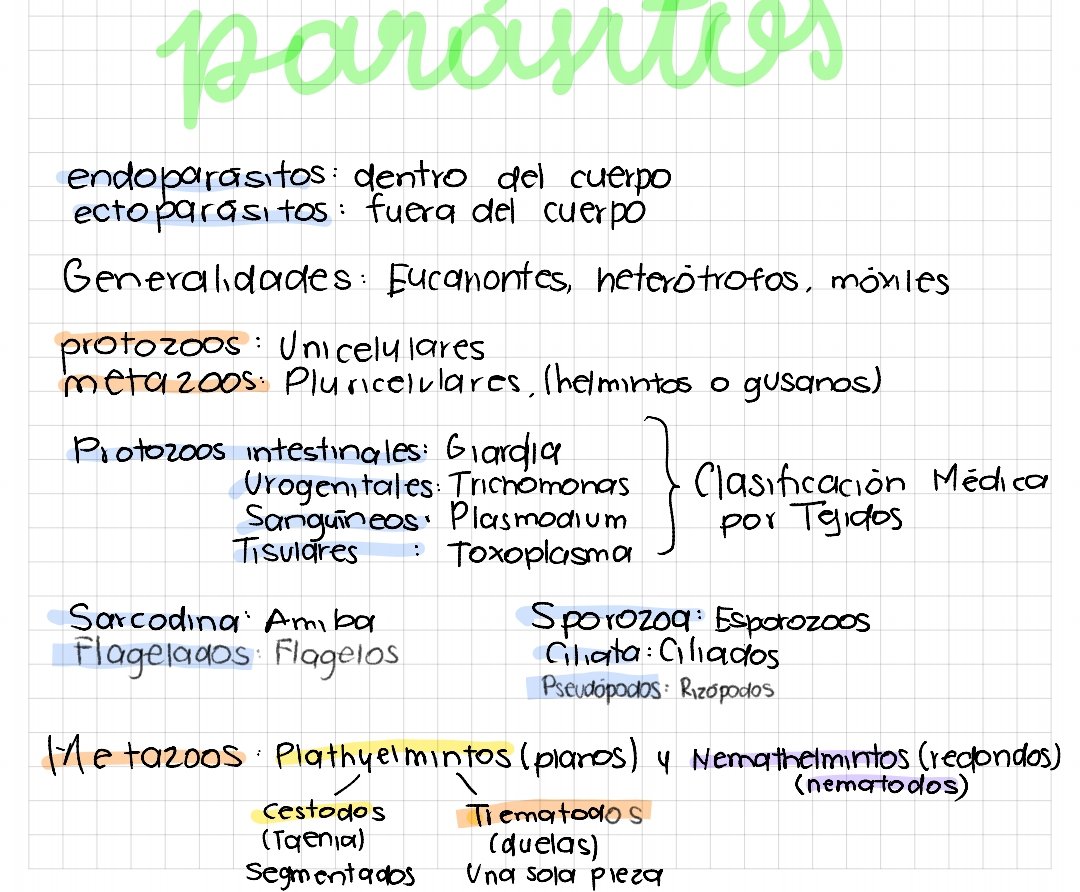 parásitos
endoparásitos: dentro del cuerpo
ectoparásitos: fuera del cuerpo
Generalidades: Eucariontes, heterótrofos, móviles
protozoos: Unicelulares
metazoos: Pluricelulares, (helmintos o gusanos)
Protozoos intestinales: Giardia
Urogenitales: Trichomonas
Sanguíneos: Plasmodium
Tisulares : Toxoplasma
Clasificación Médica
por Tejidos
Sarcodina: Amiba
Flagelados: Flagelos
Sporozoa: Esporozoos
Ciliata: Ciliados
Pseudópodos: Rizópodos
Metazoos: Plathyelmintos (planos) y Nemathelmintos (redondos)
(nematodos)
Cestodos
(Taenia)
Segmentados
Trematodos
(duelas)
Una sola pieza